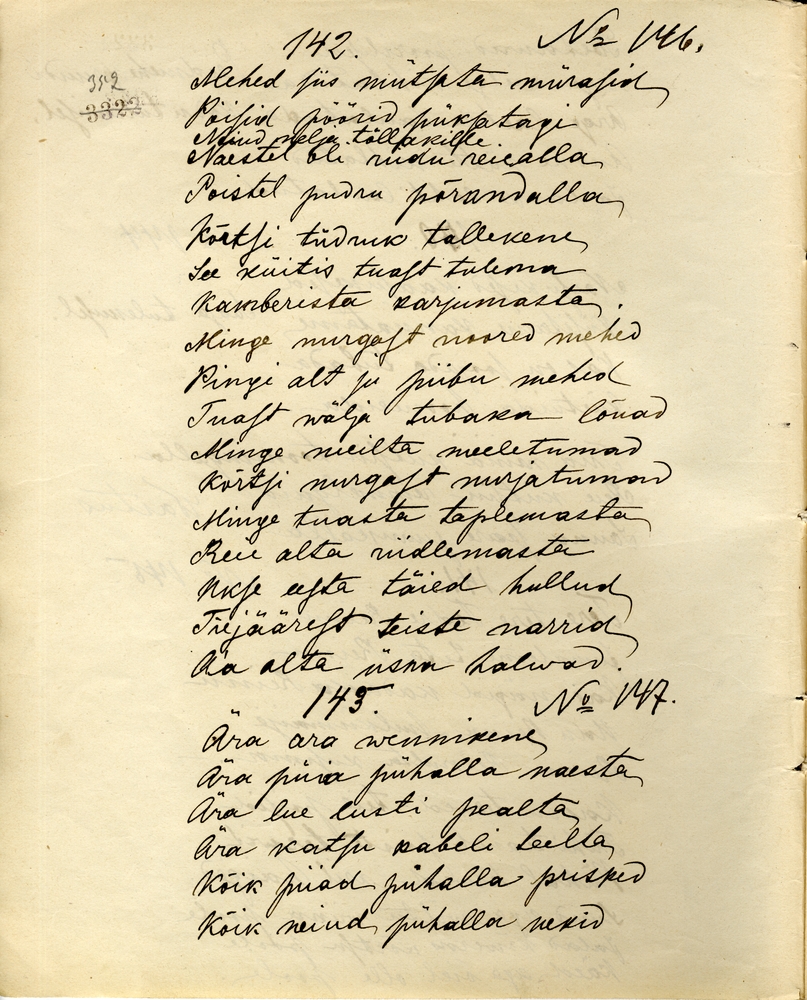 142. № 146.
352
3322
Mehed siis mütsota mürasid,
Poisid pöörid püksatagi
Neiud nelja tõllakille.
Naestel oli riidu reiealla,
Poistel pudru põrandalla,
Kõrtsi tüdruk tallekene,
See küitis tuast tulema
Kamberista karjumasta.
Minge nurgast noored mehed
Pingi alt ju piibu mehed
Tuast wälja tubaka lõuad
Minge meilta meeletumad
Kõrtsi nurgast nurjatumad
Minge tuasta taplemasta,
Reie alta riidlemasta
Ukse eesta täied hullud,
Tiejäärest teiste narrid,
Aia alta üsna halwad.
145. № 147.
Ära ära wennikene,
Ära püia pühalla naesta,
Ära lue lusti pealta,
Ära katsu kabeli seelta,
Kõik piiad pühalla prisked
Kõik neiud pühalla nekid